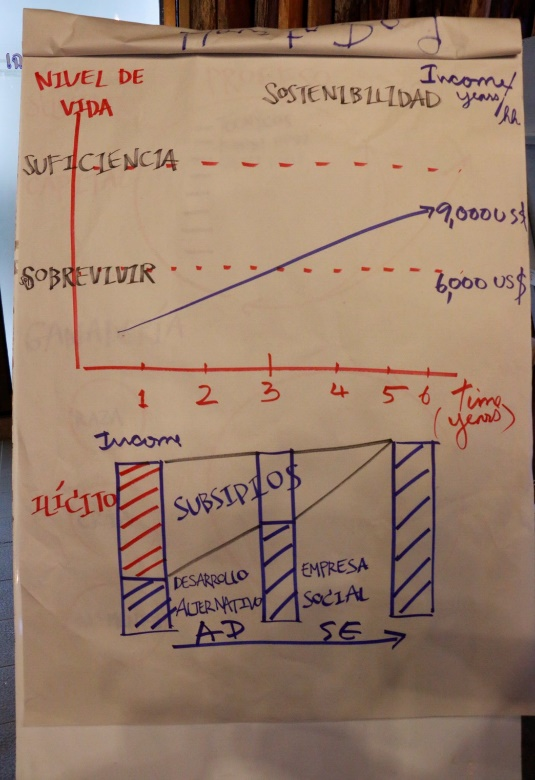 NIVEL DE
VIDA
Income/
years/
hh
SOSTENIBILIDAD
SUFICIENCIA
9,000 US$
SOBREVIVIR
6,000 US$
1 2 3 4 5 6
time
(years)
Income
ILÍCITO
SUBSIDIOS
DESARROLLO
ALTERNATIVO
AD
EMPRESA
SOCIAL
SE